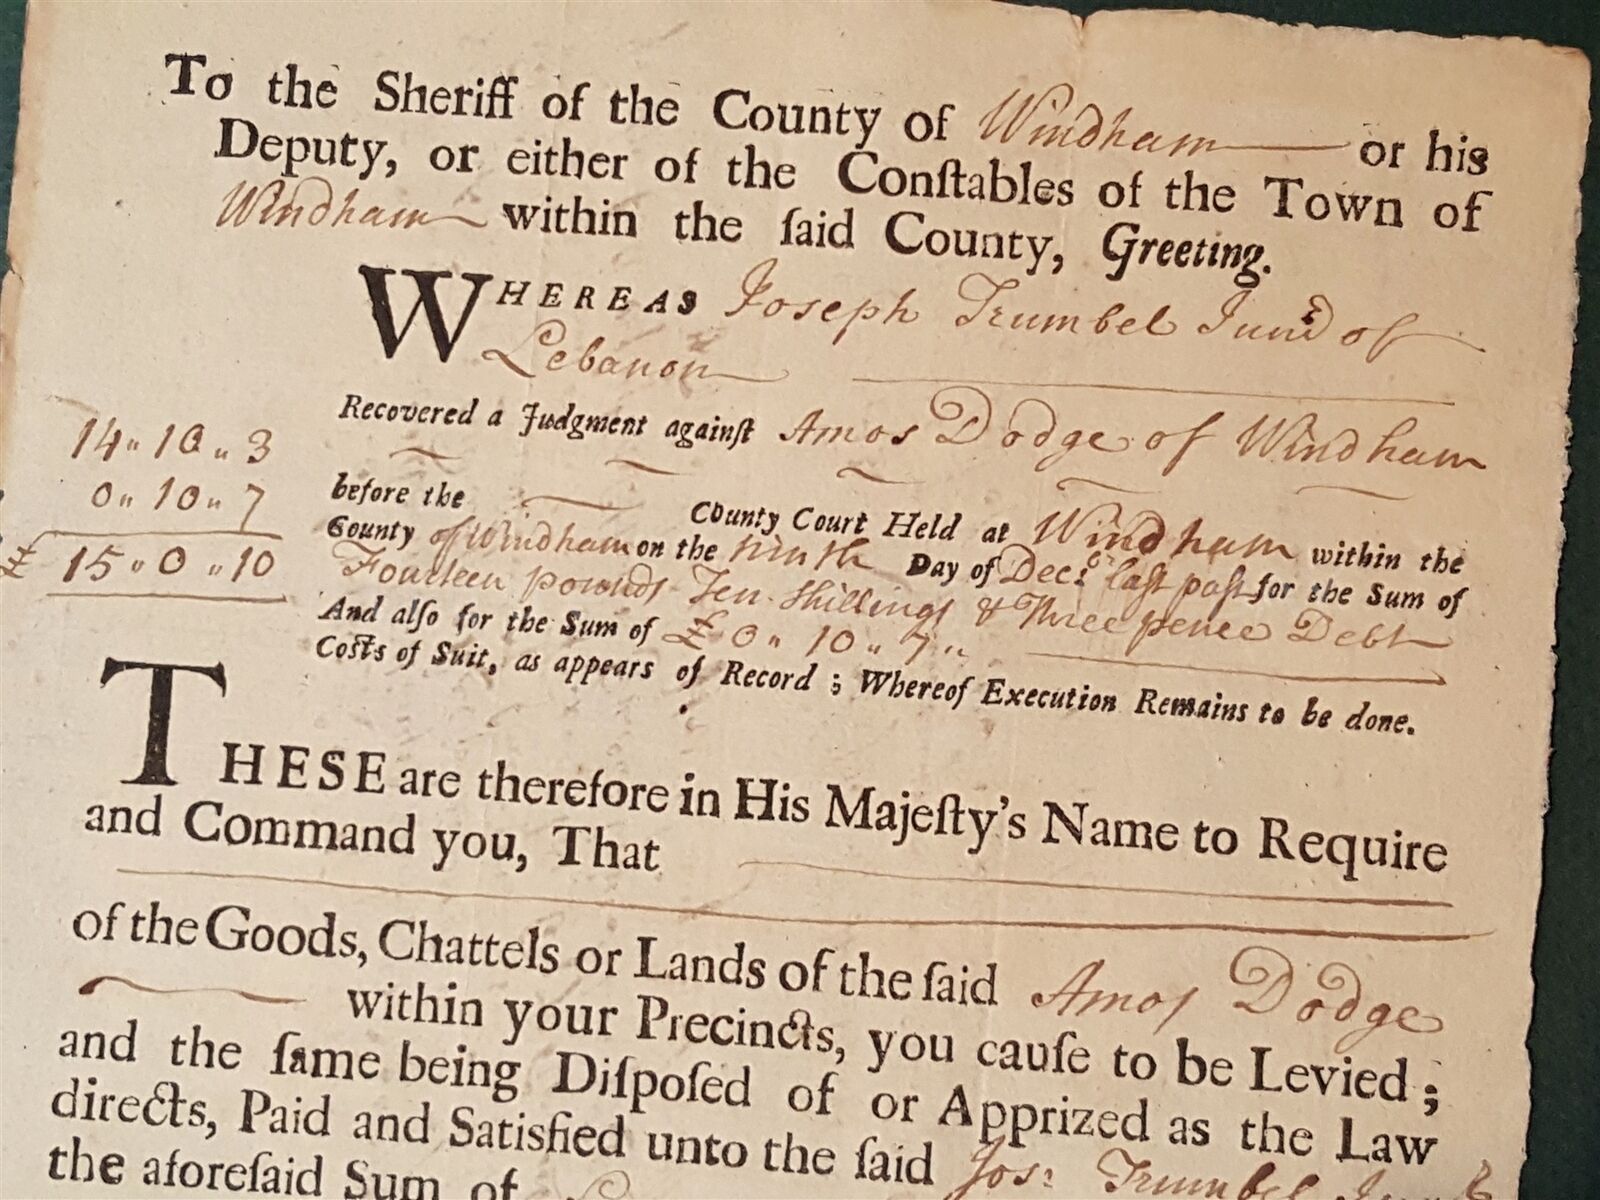 To the Sheriff of the County of Windham or his
Deputy, or either of the Conſtables of the Town of
Windham within the ſaid County, Greeting.
WHEREAS Joseph Trumbel Junr of
Lebanon
Recovered a Judgment againſt Amos Dodge of Windham
14 " 10 " 3
0 " 10 " 7
£ 15 " 0 " 10
before the County Court Held at Windham within the
County of Windham on the ninth Day of Decr. laſt paſt for the Sum of
Fourteen pounds Ten Shillings & Three pence Debt
And alſo for the Sum of £ 0 " 10 " 7 "
Coſts of Suit, as appears of Record ; Whereof Execution Remains to be done.
THESE are therefore in His Majeſty's Name to Require
and Command you, That
of the Goods, Chattels or Lands of the ſaid Amos Dodge
within your Precincts, you cauſe to be Levied ;
and the ſame being Diſpoſed of or Apprized as the Law
directs, Paid and Satisfied unto the ſaid Jos: Trumbel Junr
the aforeſaid Sum of